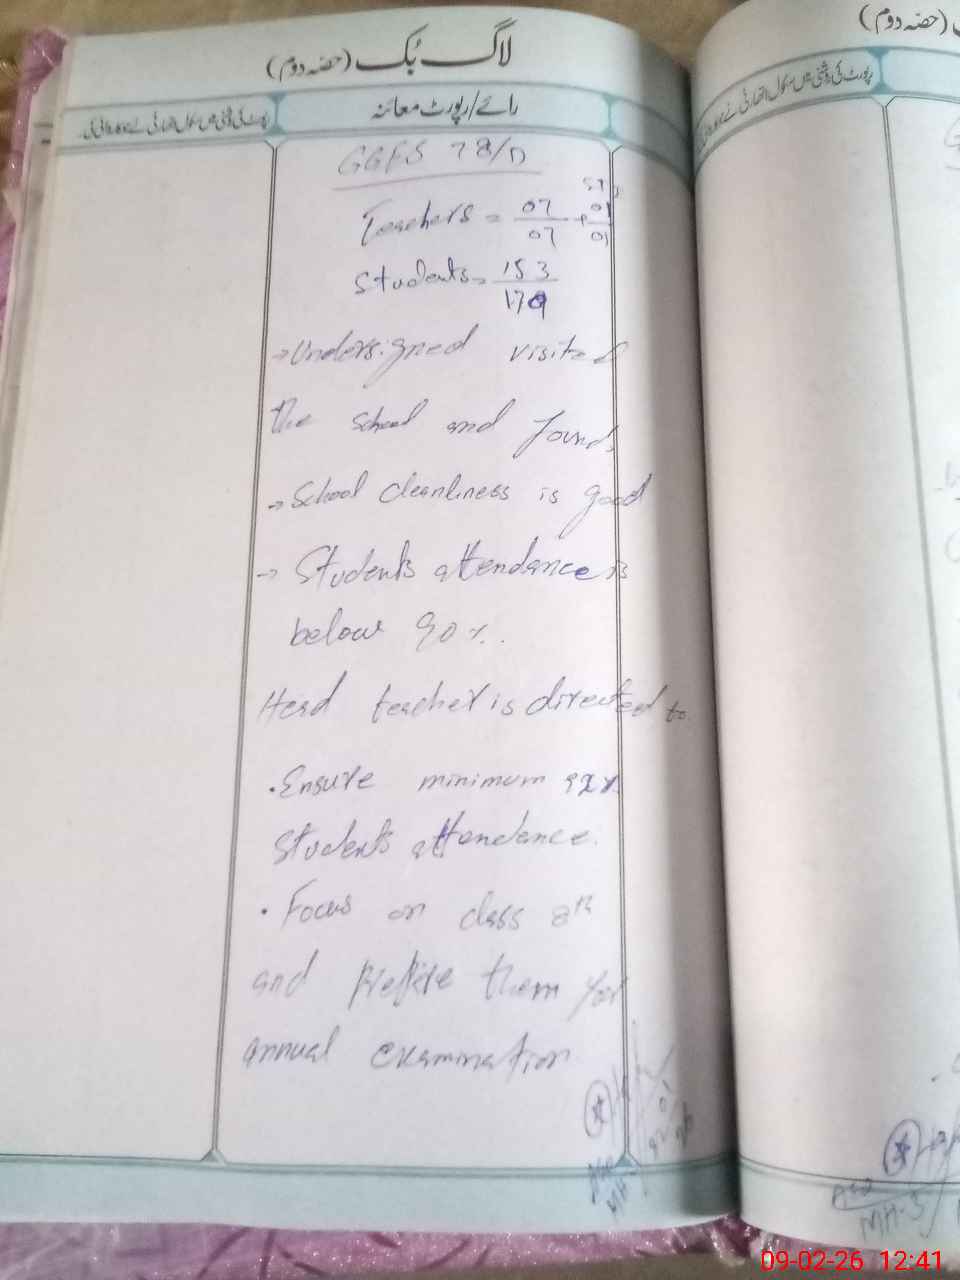 لاگ بُک (حصّہ دوم)
رائے/رپورٹ معائنہ
رپورٹ کی روشنی میں سکول اتھارٹی نے جو کاروائی کی
GGES 78/D
Teachers = 07/07 + 01/01
Students = 153/179
→ Undersigned visited
the school and found,
→ School cleanliness is good
→ Students attendance is
below 90%.
Head teacher is directed to
• Ensure minimum 92%
students attendence.
• Focus on class 8th
and prepare them for
annual examination
AEO
MH-5
(حصّہ دوم)
رپورٹ کی روشنی میں سکول اتھارٹی نے
AEO
MH-5
09-02-26 12:41